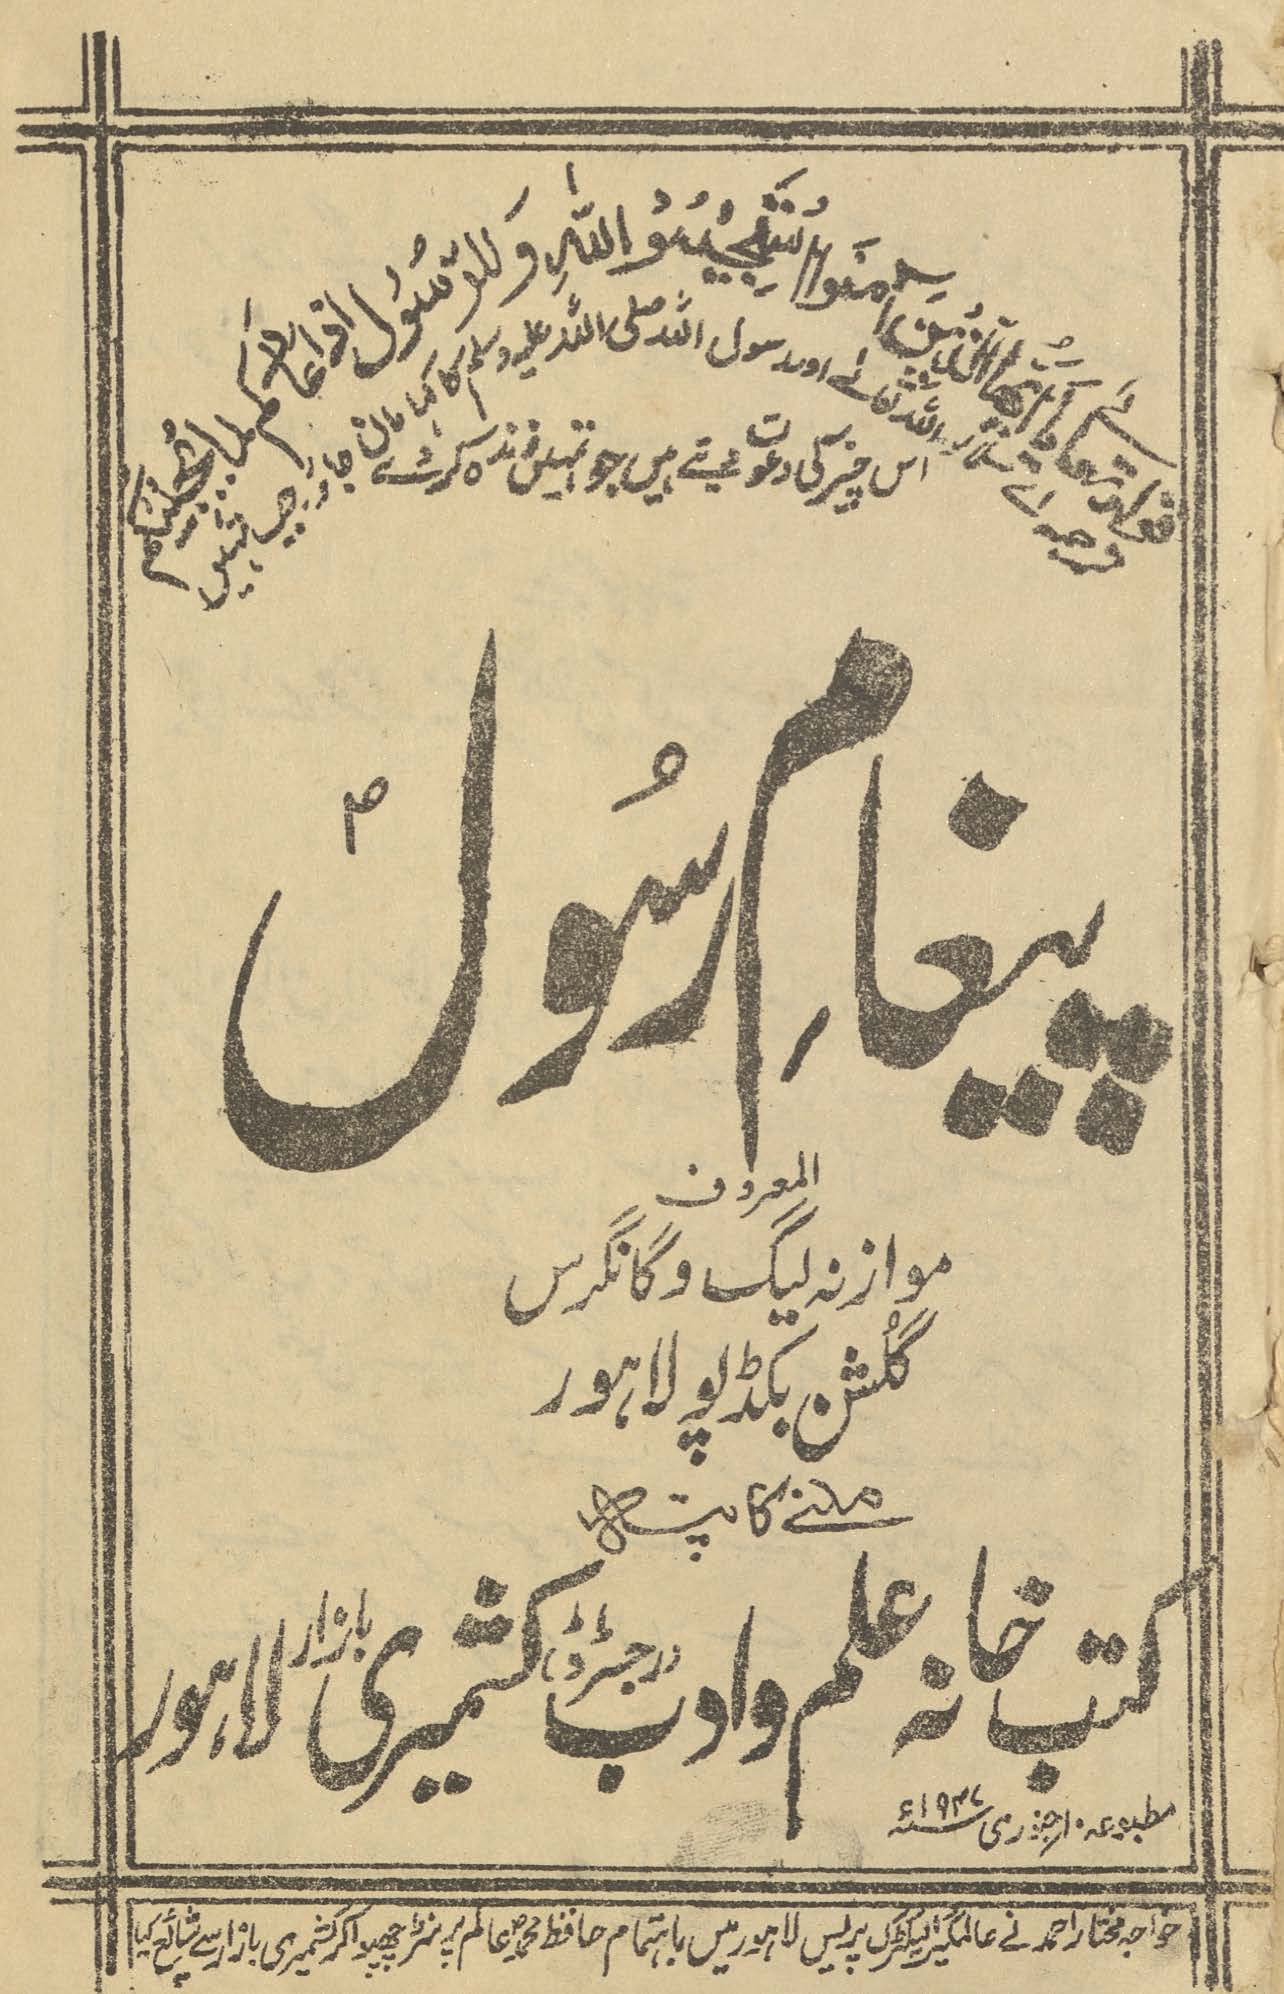 قال اللہ تعالیٰ یٰۤاَیُّھَا الَّذِیْنَ اٰمَنُوا اسْتَجِیْبُوْا لِلّٰہِ وَ لِلرَّسُوْلِ اِذَا دَعَاکُمْ لِمَا یُحْیِیْکُمْ
ترجمہ اے اللہ تعالےٰ اور رسول اللہ صلی اللہ علیہ وسلم کا کہا مان جاؤ جب تمہیں
اس چیز کی دعوت دیتے ہیں جو تمہیں زندہ کر دے
پیغامِ رسُول ؐ
المعروف
موازنہ لیگ و کانگرس
گلشن بکڈپو لاہور
ملنے کا پتہ
کتب خانہ علم و ادب (رجسٹرڈ) کشمیری بازار لاہور
مطبوعہ ۱۰ جنوری ۱۹۴۷ء
خواجہ مختار احمد نے عالمگیر الیکٹرک پریس لاہور میں باہتمام حافظ محمد عالم پرنٹر چھپوا کر کشمیری بازار سے شائع کیا